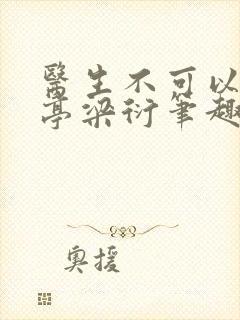 醫生不可以
亭梁衍筆趣
奧援